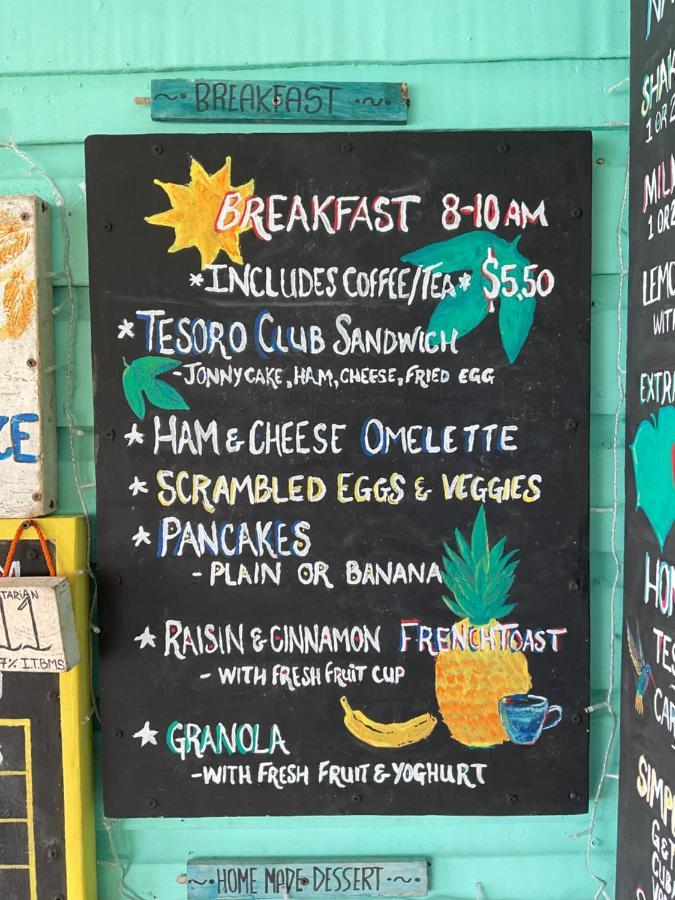 ~ BREAKFAST ~
BREAKFAST 8-10 AM
*INCLUDES COFFEE/TEA* $5,50
* TESORO CLUB SANDWICH
-JONNYCAKE, HAM, CHEESE, FRIED EGG
* HAM & CHEESE OMELETTE
* SCRAMBLED EGGS & VEGGIES
* PANCAKES
- PLAIN OR BANANA
* RAISIN & CINNAMON FRENCHTOAST
- WITH FRESH FRUIT CUP
* GRANOLA
-WITH FRESH FRUIT & YOGHURT
~HOME MADE DESSERT~
11
7% I.T.B.M.S
1 OR
1 OR
WITH